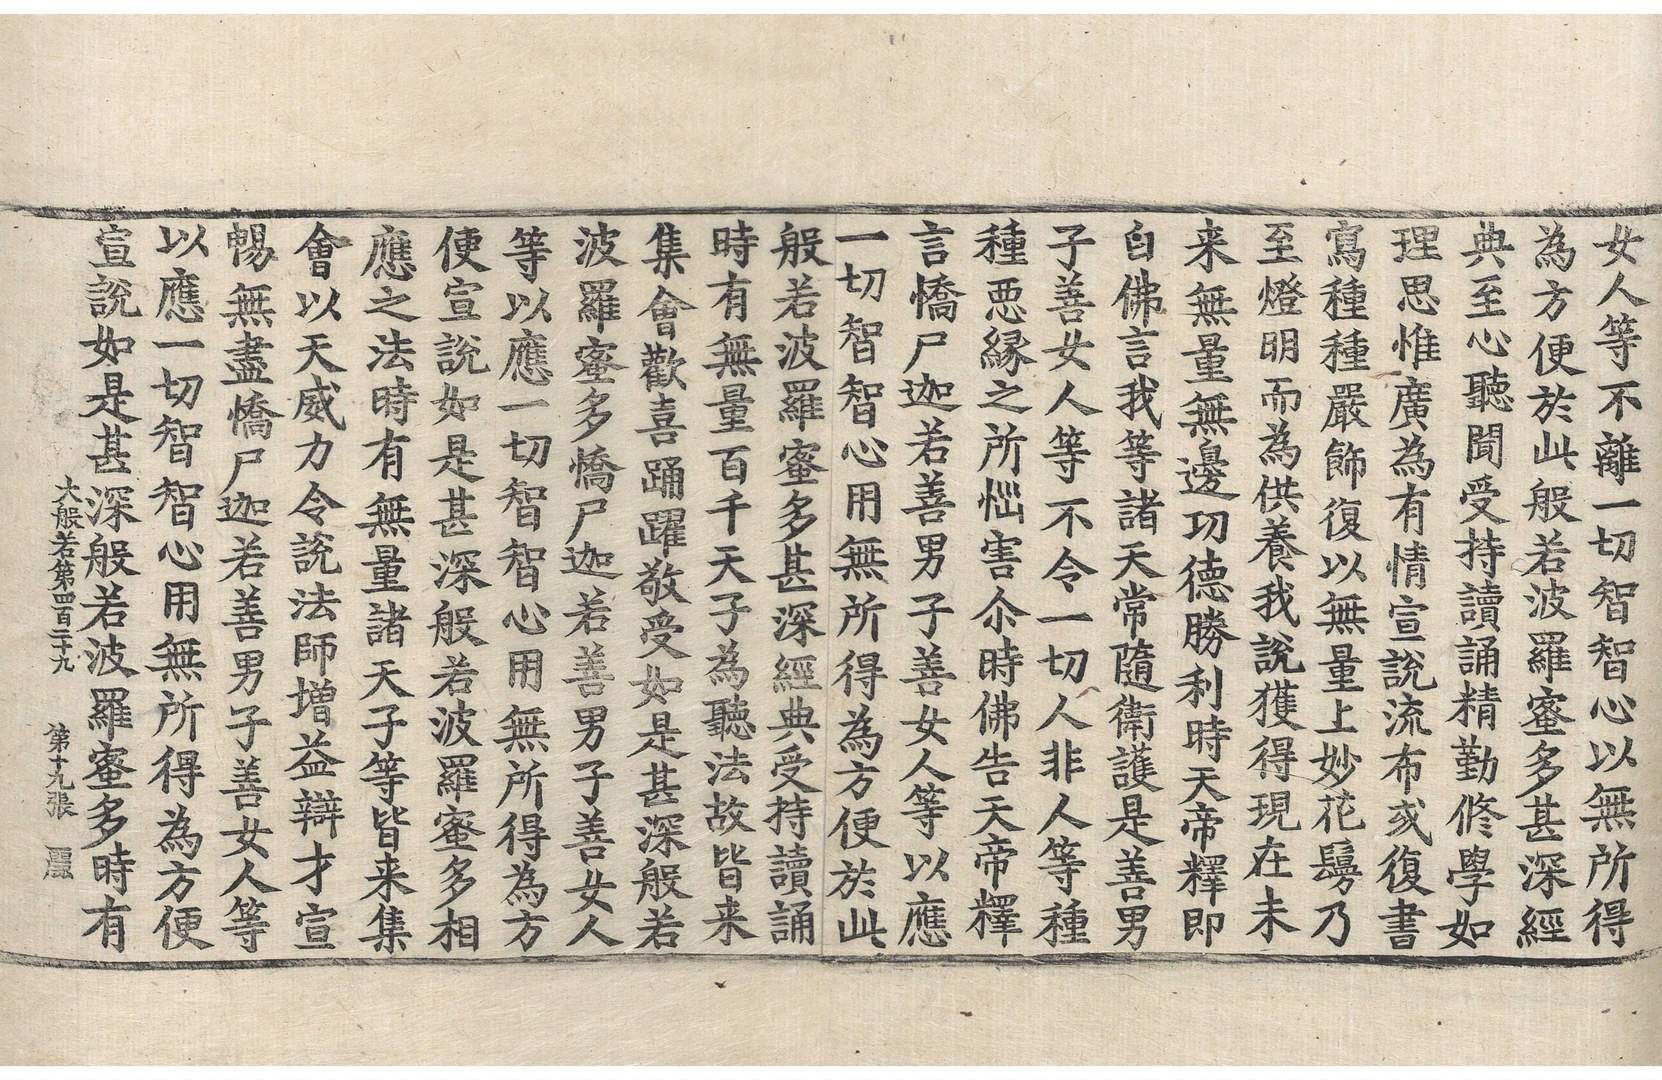 女人等不離一切智智心以無所得
為方便於此般若波羅蜜多甚深經
典至心聽聞受持讀誦精勤修學如
理思惟廣為有情宣說流布或復書
寫種種嚴飾復以無量上妙花鬘乃
至燈明而為供養我說獲得現在未
来無量無邊功德勝利時天帝釋即
白佛言我等諸天常隨衛護是善男
子善女人等不令一切人非人等種
種惡緣之所惱害尒時佛告天帝釋
言憍尸迦若善男子善女人等以應
一切智智心用無所得為方便於此
般若波羅蜜多甚深經典受持讀誦
時有無量百千天子為聽法故皆来
集會歡喜踊躍敬受如是甚深般若
波羅蜜多憍尸迦若善男子善女人
等以應一切智智心用無所得為方
便宣說如是甚深般若波羅蜜多相
應之法時有無量諸天子等皆来集
會以天威力令說法師增益辯才宣
暢無盡憍尸迦若善男子善女人等
以應一切智智心用無所得為方便
宣說如是甚深般若波羅蜜多時有
大般若第四百二十九 第十九張 麗